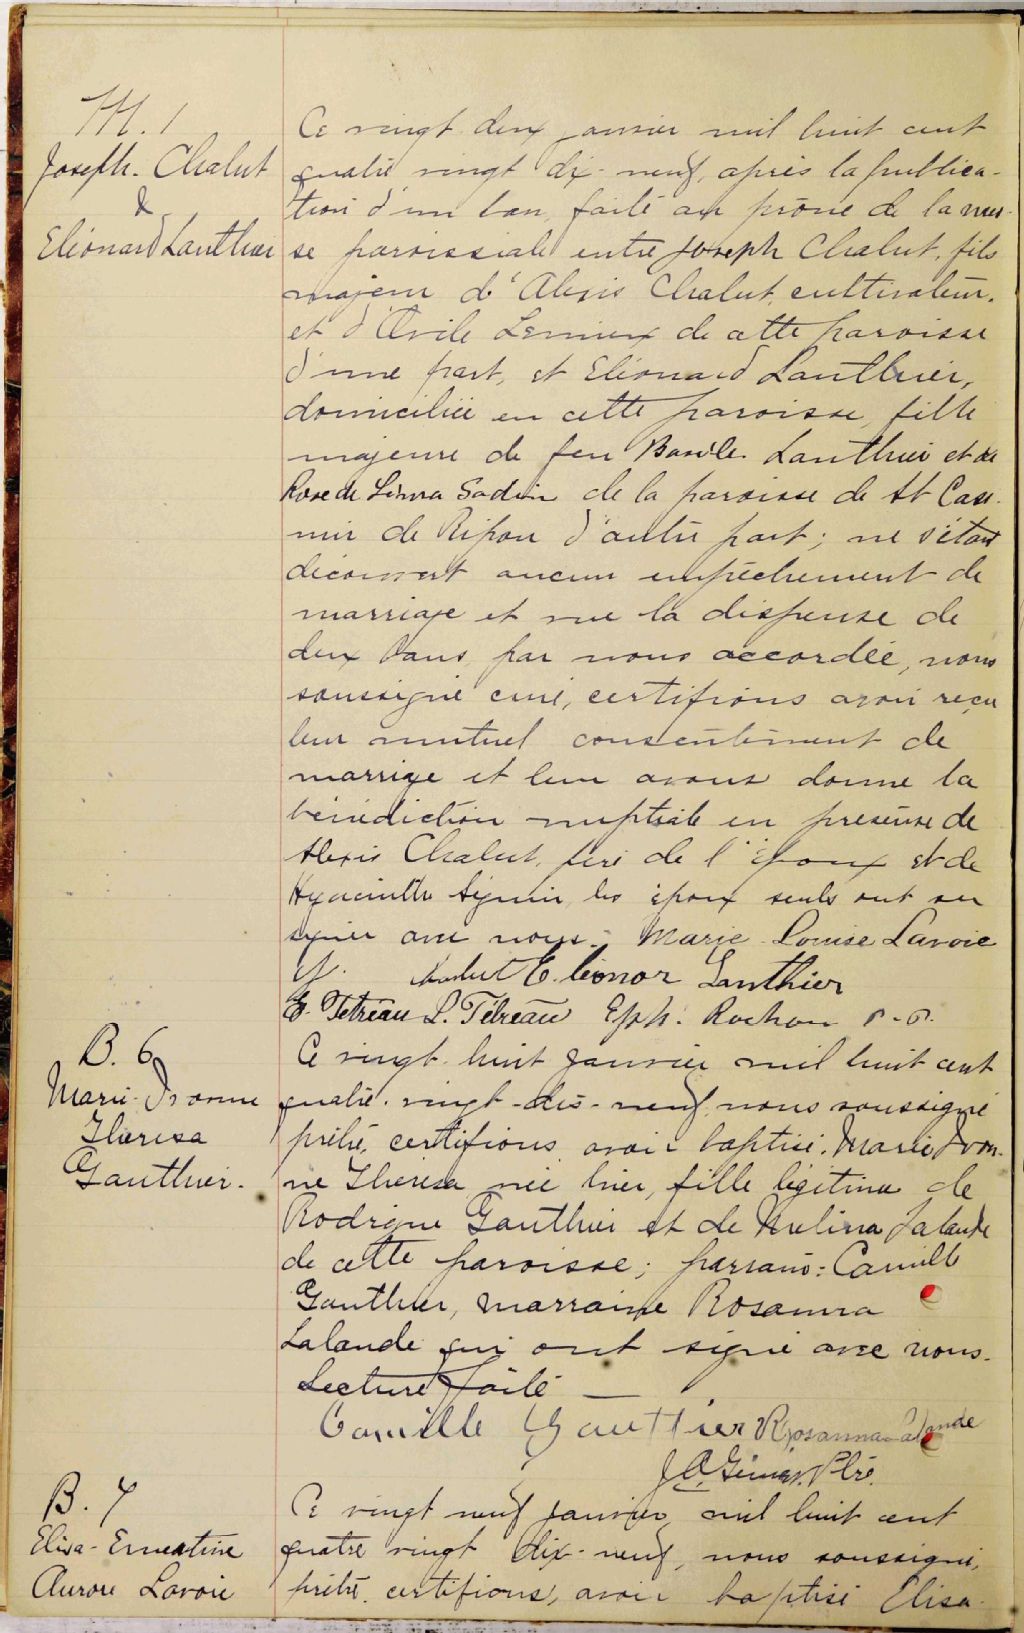 M. 1
Joseph Chalut
&
Eléonard Lanthier
Ce vingt deux janvier mil huit cent
quatre vingt dix-neuf, après la publica-
tion d'un ban faite au prône de la mes-
se paroissiale entre Joseph Chalut, fils
majeur d'Alexis Chalut, cultivateur,
et d'Orvile Lemieux de cette paroisse
d'une part, et Eléonard Lanthier,
domiciliée en cette paroisse, fille
majeure de feu Basile Lanthier et de
Rose de Lima de la paroisse de St Casi-
mir de Ripon d'autre part; ne s'étant
découvert aucun empêchement de
marriage et vue la dispense de
deux bans par nous accordée, nous
soussigné curé, certifions avoir reçu
leur mutuel consentement de
marrige et leur avons donné la
bénédiction nuptiale en présense de
Alexis Chalut, père de l'époux et de
Hyacinthe les époux seuls ont su
signer avec nous. Marie Louise Lavoie
J. Chalut Eléonor Lanthier
E. Tetreau L. Tétreau Eph. Rochon
B. 6
Marie-Ivonne
Theresa
Gauthier.
Ce vingt huit janvier mil huit cent
quatre-vingt-dix-neuf nous soussigné
prêtre, certifions avoir baptisé Marie Ivon-
ne Theresa née hier, fille légitime de
Rodrigue Gauthier et de Mélina Lalande
de cette paroisse; parrain: Camille
Gauthier, marraine Rosanna
Lalande qui ont signé avec nous.
Lecture faite —
Camille Gauthier Rosanna Lalande
Ptre.
B. 7
Elisa-Ernestine
Aurore Lavoie
Ce vingt neuf janvier, mil huit cent
quatre vingt dix-neuf, nous soussigné,
prêtre, certifions, avoir baptisé Elisa-